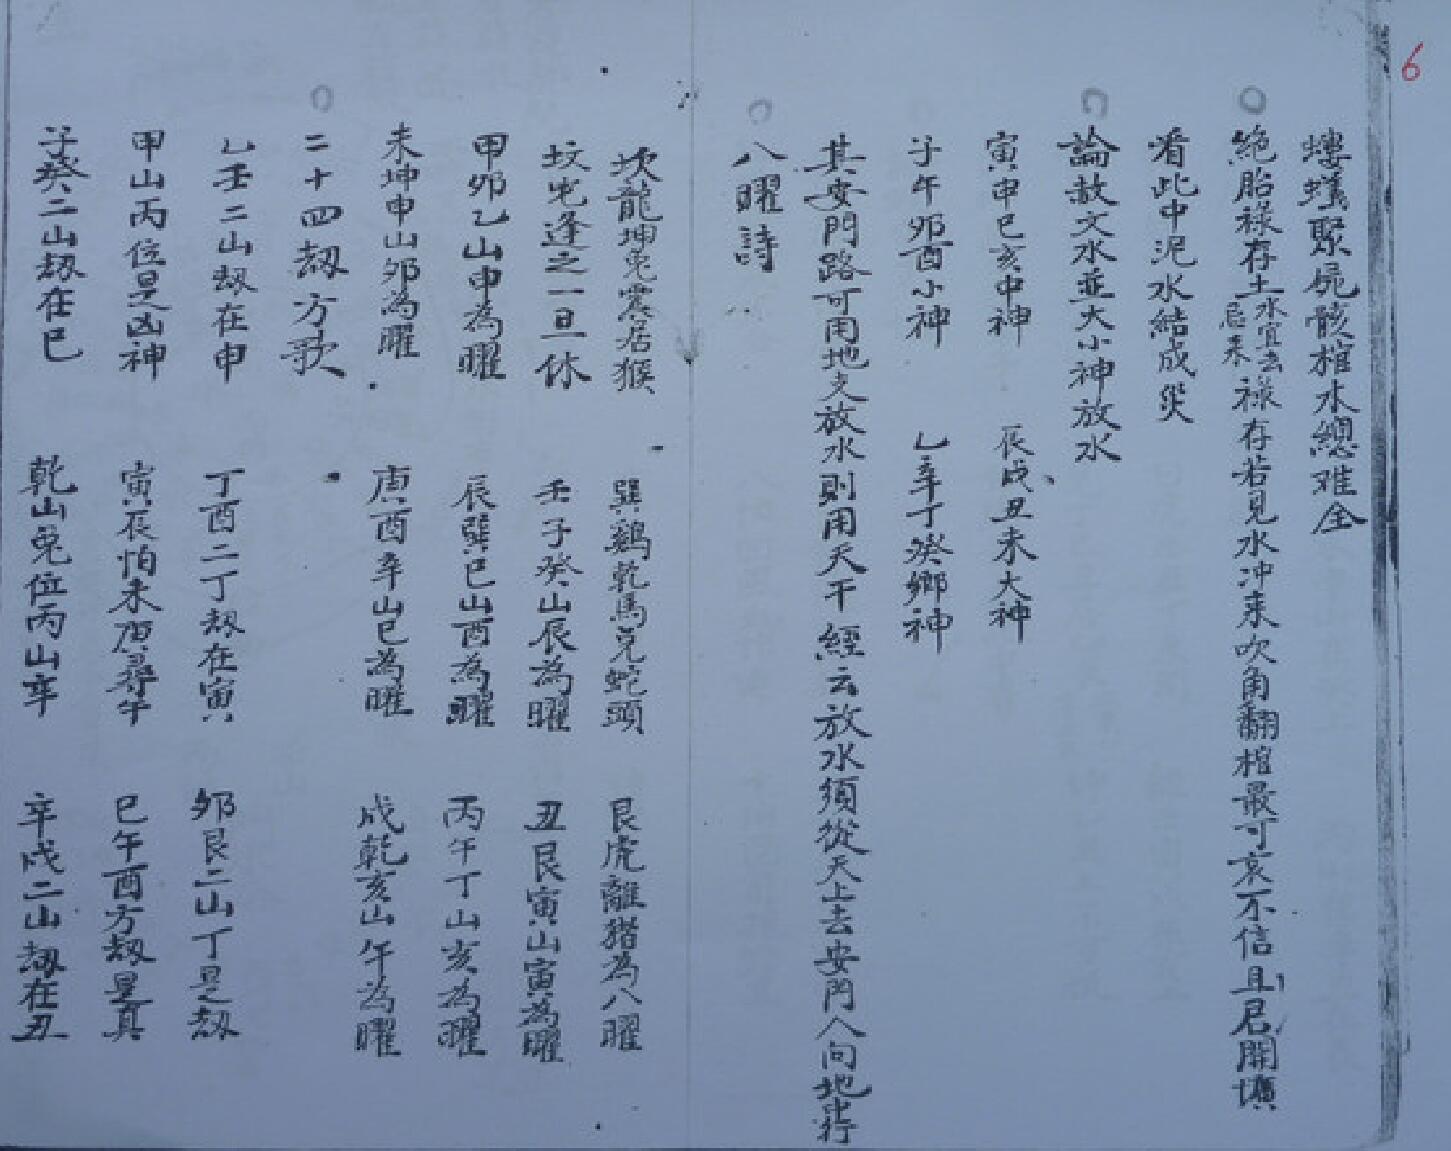 6
螻蟻聚屍骸棺水總难全
絶胎祿存土水宜去忌来祿存若見水冲来吹角翻棺最可哀不信且君開壙
看此中泥水結成災
論赦文水並大小神放水
寅申巳亥中神 辰戌丑未大神
子午卯酉小神 乙辛丁癸鄉神
其安門路可用地支放水則用天干 經云放水須從天上去安門人向地中行
八曜詩
坎龍坤兔震居猴 巽鷄乾馬兌蛇頭 艮虎離猪為八曜
坟宅逢之一旦休 壬子癸山辰為曜 丑艮寅山寅為曜
甲卯乙山申為曜 辰巽巳山酉為曜 丙午丁山亥為曜
未坤申山卯為曜 庚酉辛山巳為曜 戌乾亥山午為曜
二十四刼方歌
乙壬二山刼在申 丁酉二丁刼在寅 卯艮二山丁是刼
甲山丙位是凶神 寅辰怕未庚尋午 巳午酉方刼是真
子癸二山刼在巳 乾山兔位丙山辛 辛戌二山刼在丑